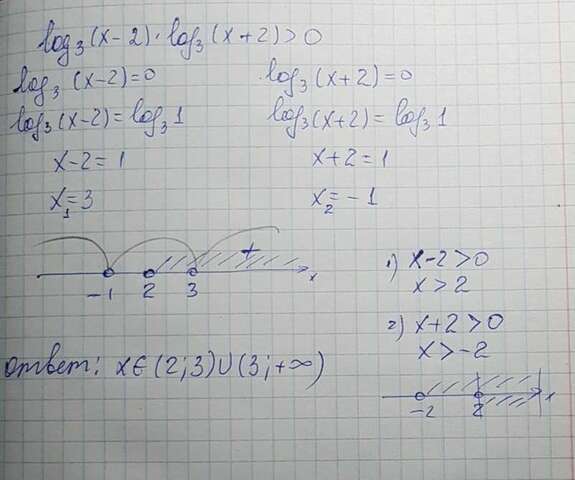 log₃(x-2)·log₃(x+2)>0
log₃(x-2)=0
log₃(x-2)=log₃1
x-2=1
x₁=3
log₃(x+2)=0
log₃(x+2)=log₃1
x+2=1
x₂=-1
+
-1 2 3 x
1) x-2>0
x>2
2) x+2>0
x>-2
-2 2 x
Ответ: x∈(2;3)∪(3;+∞)